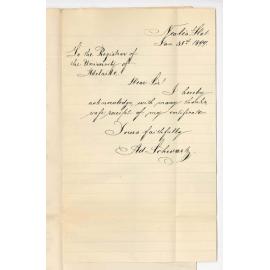 Jan 31st 1899.
To the Registrar of
the University of
Adelaide.
Dear Sir
I hereby
acknowledge with many thanks
safe receipt of my certificate
Yours faithfully
Ad. Schwartz